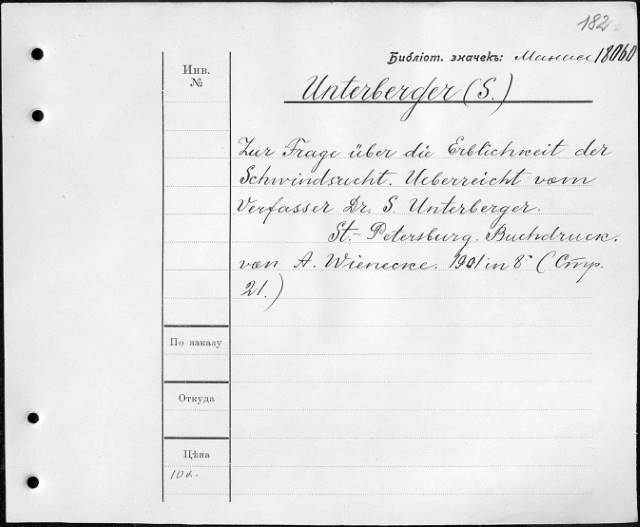 182
Библіот. значекъ: 18060
Инв.
№
Unterberger (S.)
Zur Frage über die Erblichkeit der
Schwindsucht. Ueberreicht vom
Verfasser Dr. S. Unterberger.
St.-Petersburg. Buchdruck.
von A. Wienecke. 1901 in 8° (Стр.
21.)
По заказу
Откуда
Цѣна
10к.